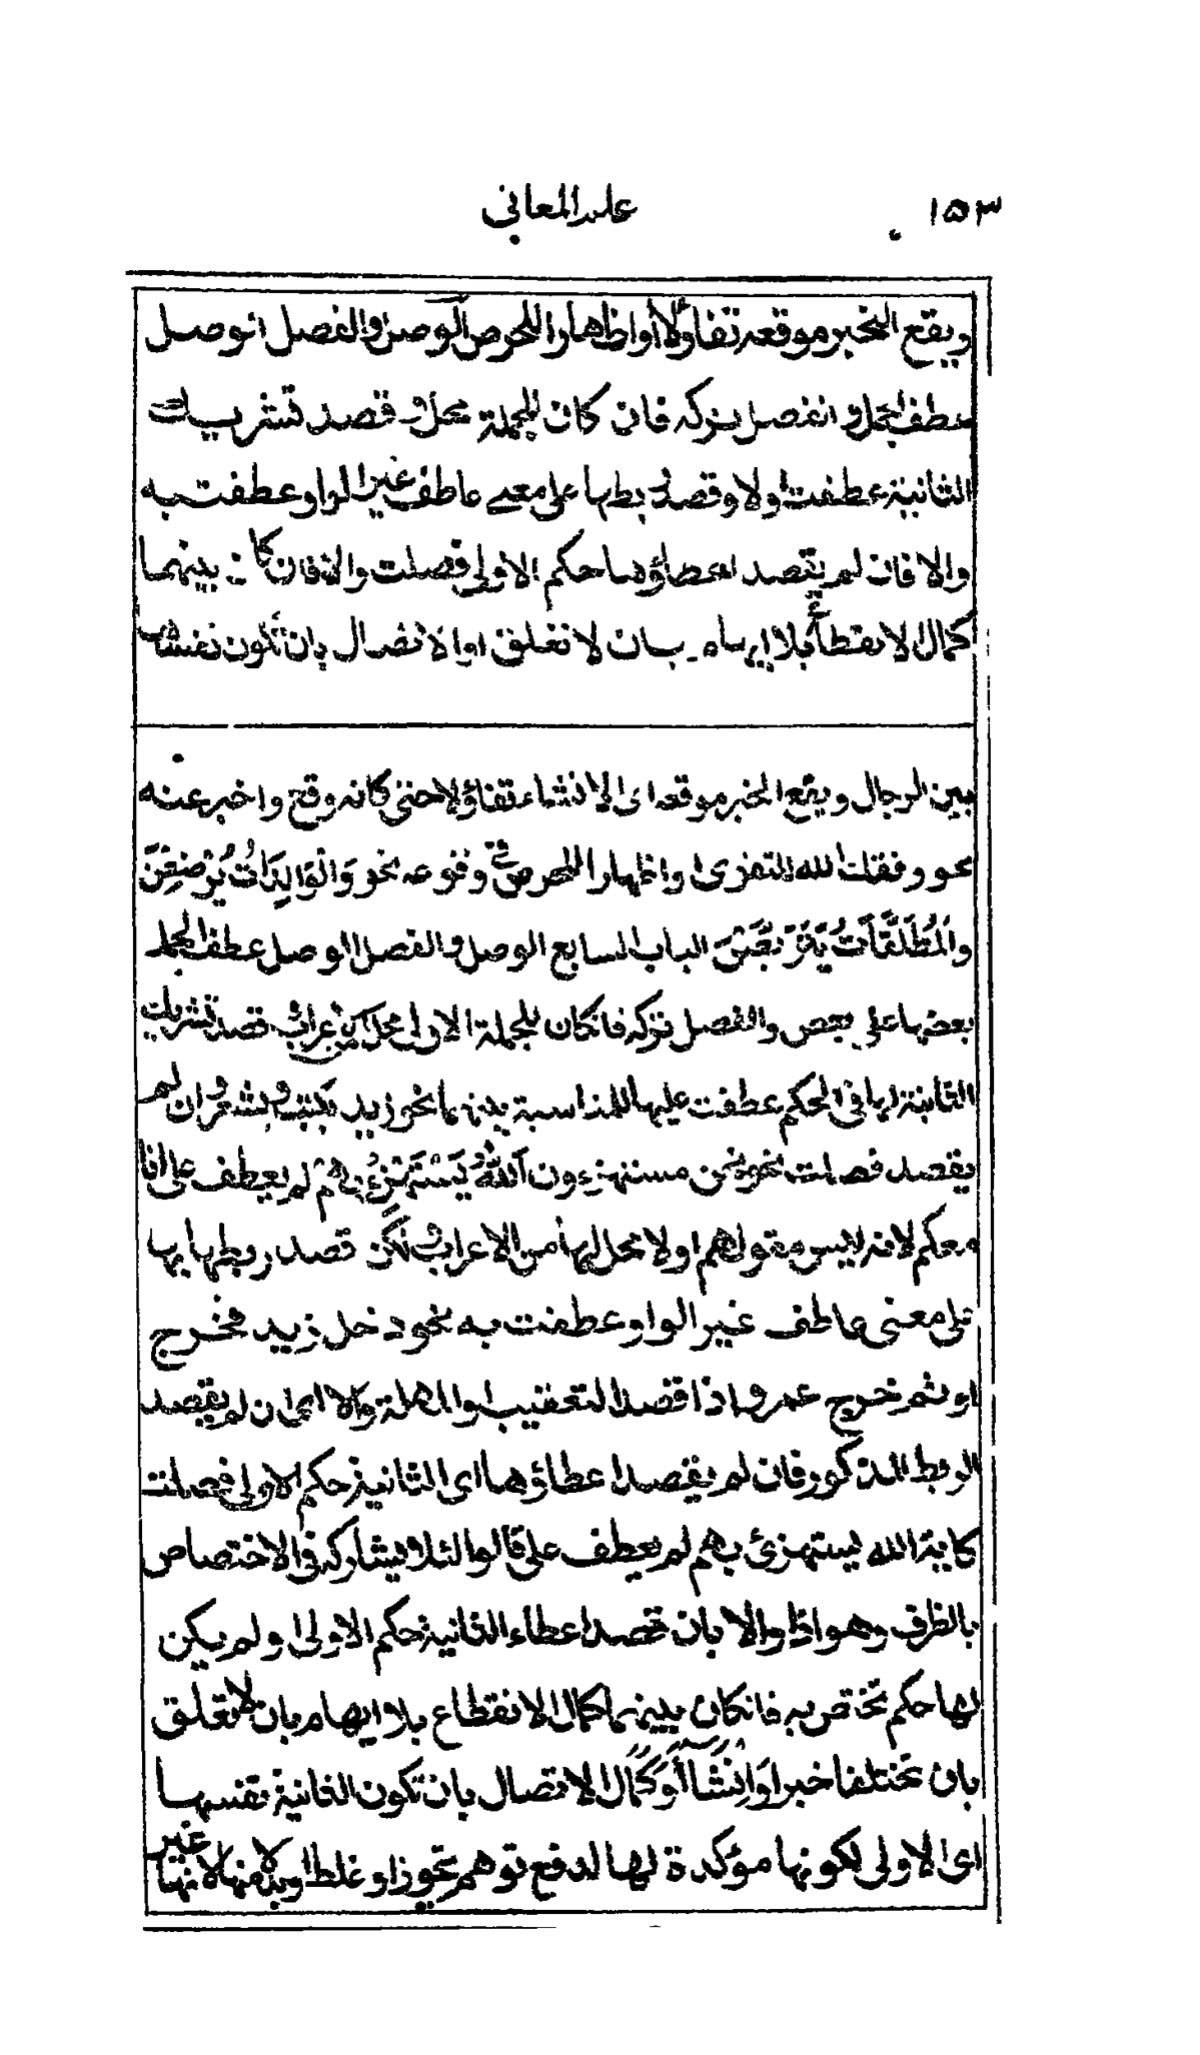 ١٥٣ علم المعانى
ويقع الخبر موقعه تفاولا أو اظهارا للحرص الوصل والفصل الوصل
عطف الجمل والفصل تركه فان كان للجملة محل و قصد تشريك
الثانية عطفت اولا وقصد ربطها على معنى عاطف غير الواو عطفت به
والا فان لم يقصد اعطاؤها حكم الاولى فصلت والا فان كان بينهما
كمال الانقطاع بلا ايهام بان لا تعلق او الاتصال بان تكون نفسها
بين الرجال ويقع الخبر موقعه اى الانشاء تفاؤلا حتى كانه وقع واخبر عنه
نحو وفقك الله للتقوى او اظهارا للحرص فى وقوعه نحو وَالْوَالِدَاتُ يُرْضِعْنَ
وَالْمُطَلَّقَاتُ يَتَرَبَّصْنَ الباب السابع الوصل والفصل الوصل عطف الجمل
بعضها على بعض والفصل تركه فانكان للجملة الاولى محل من اعراب و قصد تشريك
الثانية لها فى الحكم عطفت عليها للمناسبة بينهما نحو زيد يكتب ويشعر وان لم
يقصد فصلت نحو نحن مستهزءون اَللّٰهُ يَسْتَهْزِئُ بِهِمْ لم يعطف على انا
معكم لانه ليس مقولهم او لا محل لها من الاعراب و لكن قصد ربطها بها
على معنى عاطف غير الواو عطفت به نحو دخل زيد فخرج
او ثم خرج عمرو اذا قصد التعقيب او المهلة والا اى ان لم يقصد
الربط المذكور فان لم يقصد اعطاؤها اى الثانية حكم الاولى فصلت
كاية الله يستهزئ بهم لم يعطف على قالوا لئلا يشاركه فى الاختصاص
بالظرف وهو اذا والا بان قصد اعطاء الثانية حكم الاولى او لم يكن
لها حكم تختص به فانكان بينهما كمال الانقطاع بلا ايهام بان لا تعلق
بان تختلفا خبرا وَاِنْشَاءً أَوْ كَمَال الاتصال بان تكون الثانية نفسها
اى الاولى لكونها مؤكدة لها لدفع توهم تجوز او غلط او بدلا منها لانها غير